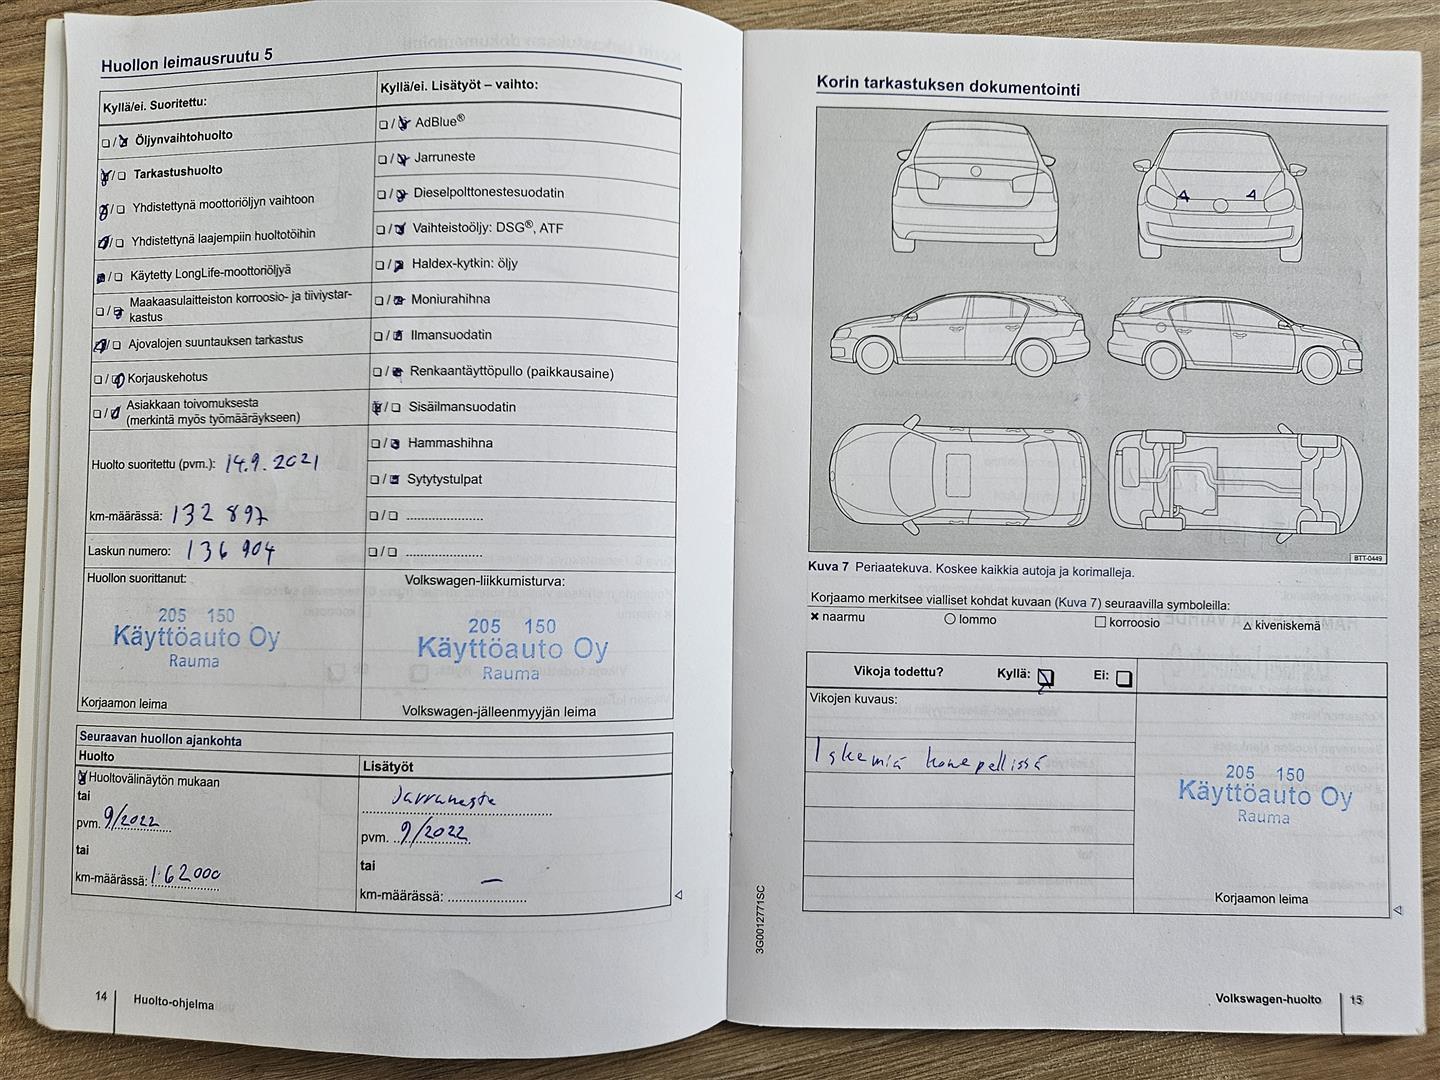 Huollon leimausruutu 5
Kyllä/ei. Suoritettu:
☐/☒ Öljynvaihtohuolto
☒/☐ Tarkastushuolto
☒/☐ Yhdistettynä moottoriöljyn vaihtoon
☒/☐ Yhdistettynä laajempiin huoltotöihin
☒/☐ Käytetty LongLife-moottoriöljyä
☐/☒ Maakaasulaitteiston korroosio- ja tiiviystar-
kastus
☒/☐ Ajovalojen suuntauksen tarkastus
☐/☒ Korjauskehotus
☐/☒ Asiakkaan toivomuksesta
(merkintä myös työmääräykseen)
Huolto suoritettu (pvm.): 14.9.2021
km-määrässä: 132 897
Laskun numero: 136 904
Huollon suorittanut:
205 150
Käyttöauto Oy
Rauma
Korjaamon leima
Kyllä/ei. Lisätyöt – vaihto:
☐/☒ AdBlue®
☐/☒ Jarruneste
☐/☒ Dieselpolttonestesuodatin
☐/☒ Vaihteistoöljy: DSG®, ATF
☐/☒ Haldex-kytkin: öljy
☐/☒ Moniurahihna
☐/☒ Ilmansuodatin
☐/☒ Renkaantäyttöpullo (paikkausaine)
☒/☐ Sisäilmansuodatin
☐/☒ Hammashihna
☐/☒ Sytytystulpat
☐/☐ ......................
☐/☐ ......................
Volkswagen-liikkumisturva:
205 150
Käyttöauto Oy
Rauma
Volkswagen-jälleenmyyjän leima
Seuraavan huollon ajankohta
Huolto
☒ Huoltovälinäytön mukaan
tai
pvm. 9/2022
tai
km-määrässä: 162000
Lisätyöt
Jarruneste
pvm. 9/2022
tai
km-määrässä: —
14 Huolto-ohjelma
Korin tarkastuksen dokumentointi
BTT-0449
Kuva 7 Periaatekuva. Koskee kaikkia autoja ja korimalleja.
Korjaamo merkitsee vialliset kohdat kuvaan (Kuva 7) seuraavilla symboleilla:
✖ naarmu ◯ lommo ☐ korroosio △ kiveniskemä
Vikoja todettu? Kyllä: ☒ Ei: ☐
Vikojen kuvaus:
Iskemiä konepellissä
205 150
Käyttöauto Oy
Rauma
Korjaamon leima
3G0012771SC
Volkswagen-huolto 15